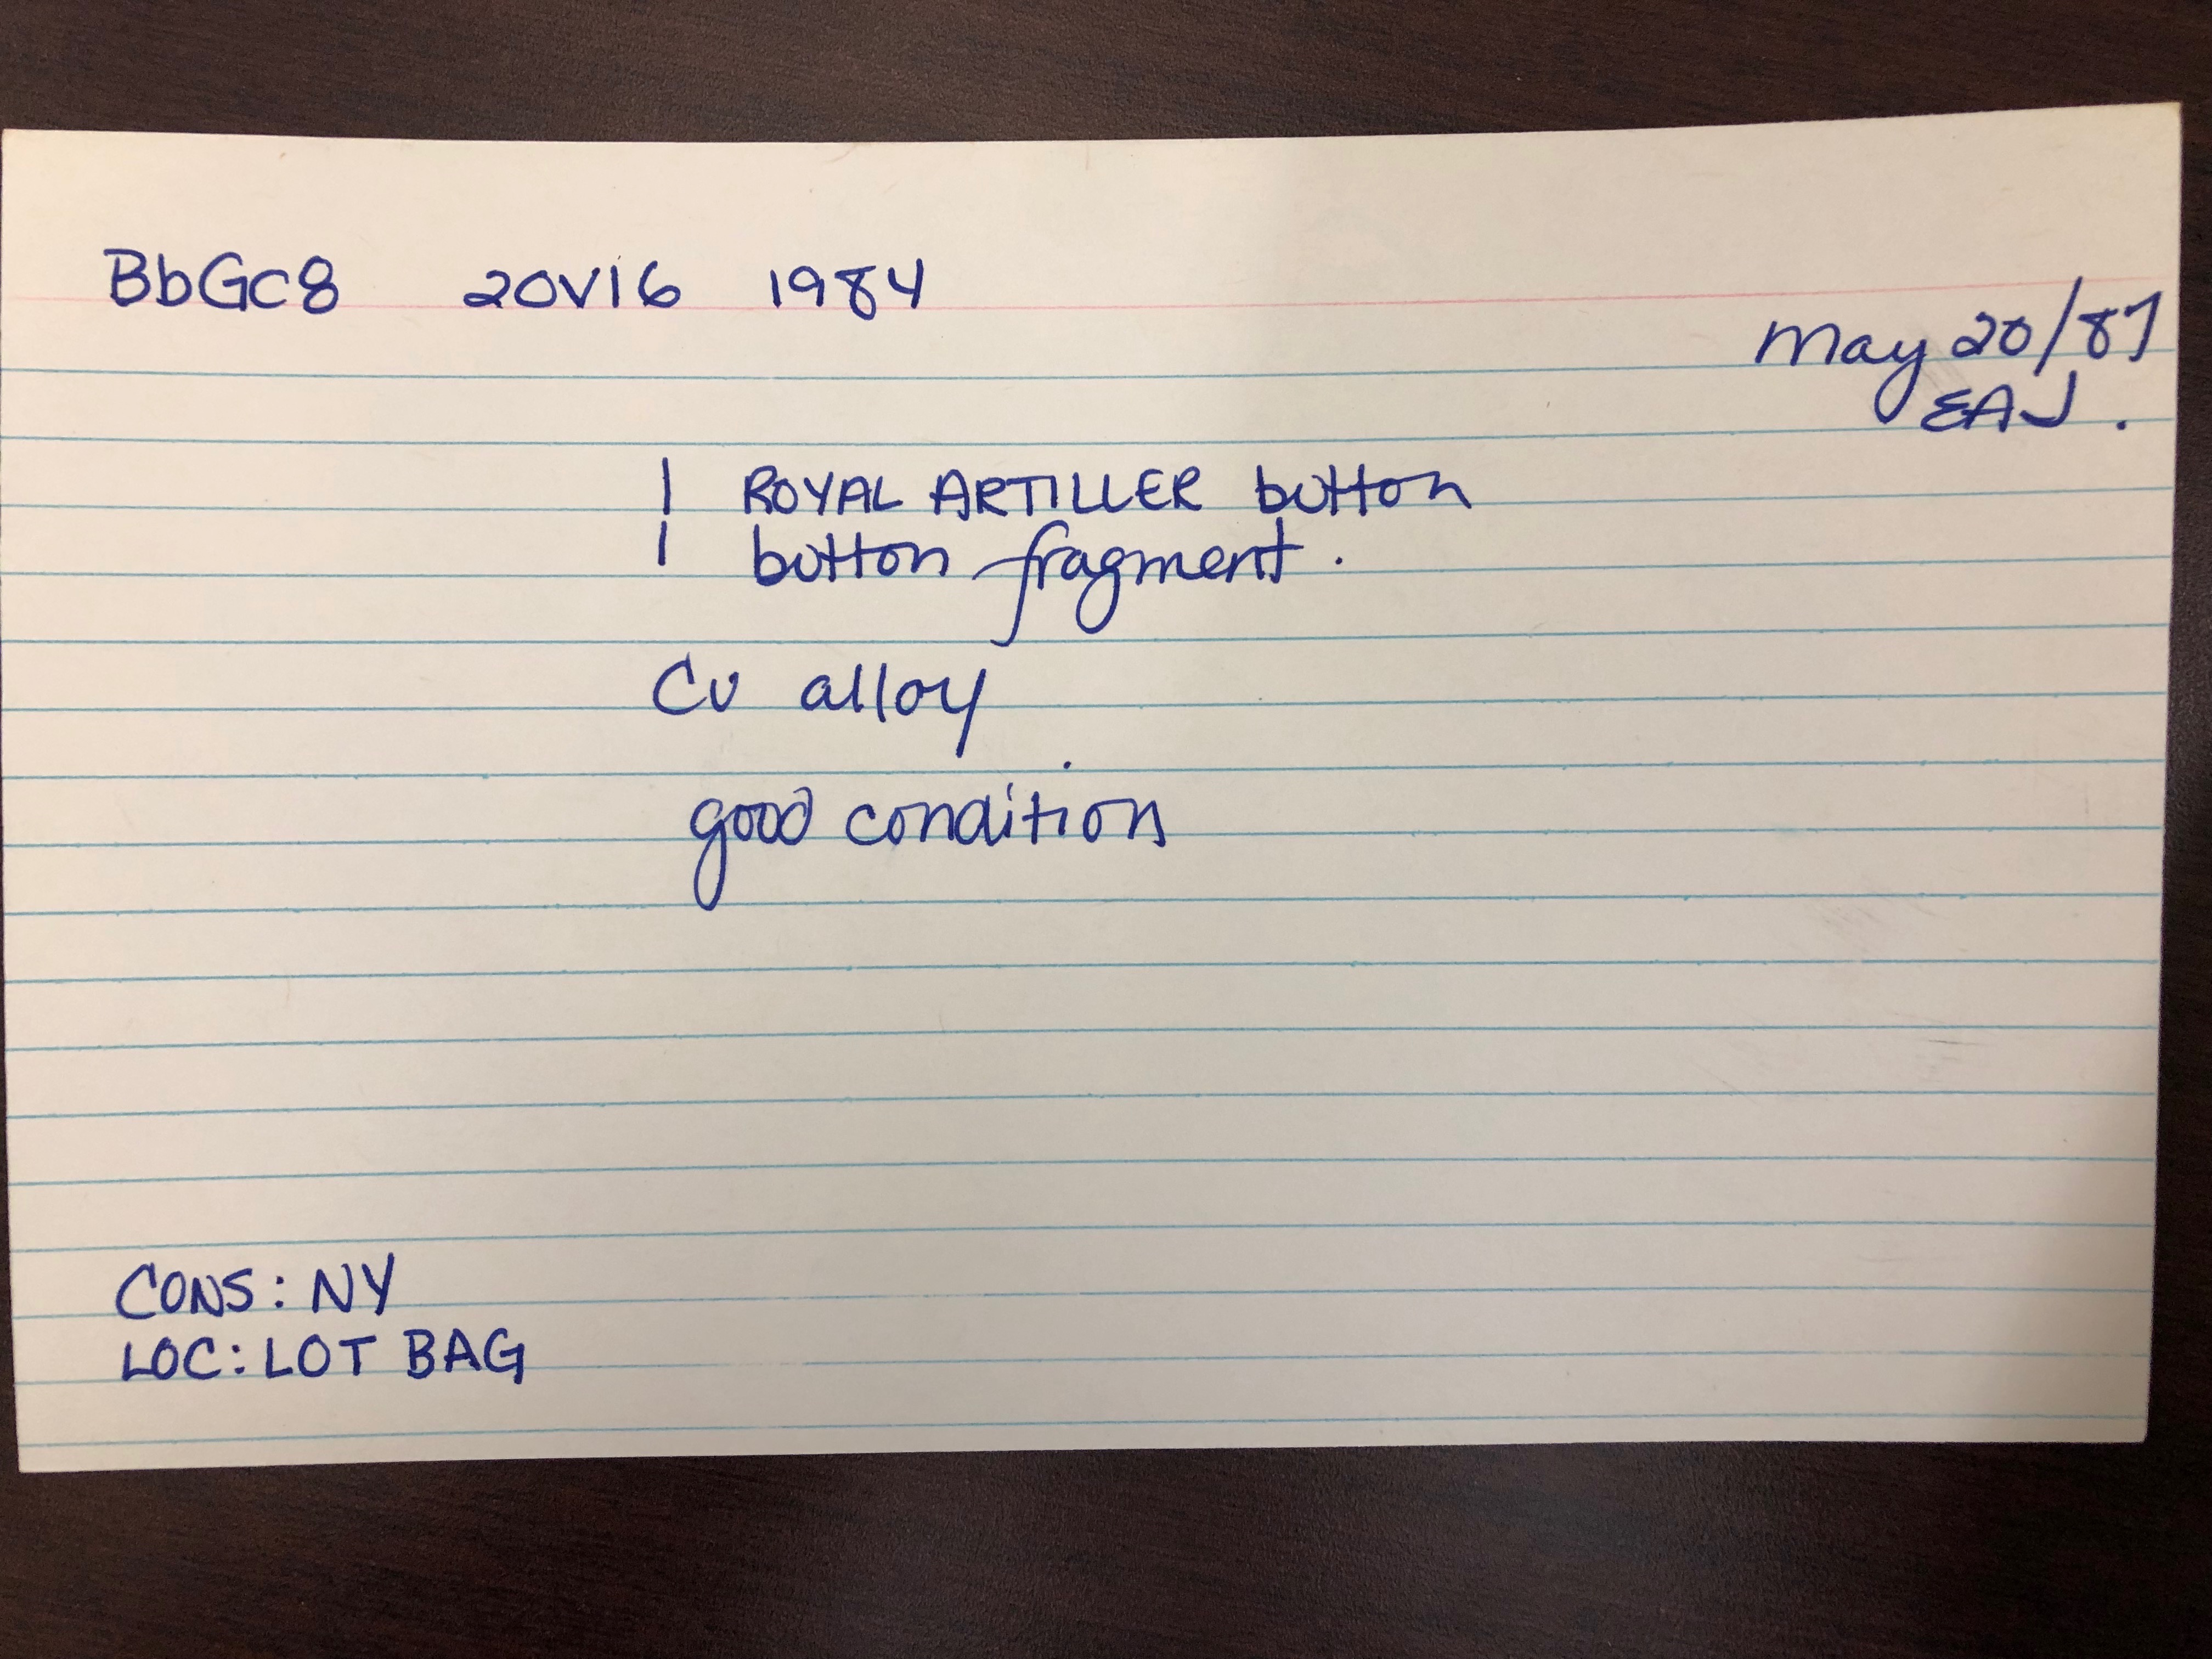 BbGc8 20V16 1984
May 20/87
EAJ.
1 ROYAL ARTILLER button
1 button fragment.
Cu alloy
good condition
CONS: NY
LOC: LOT BAG